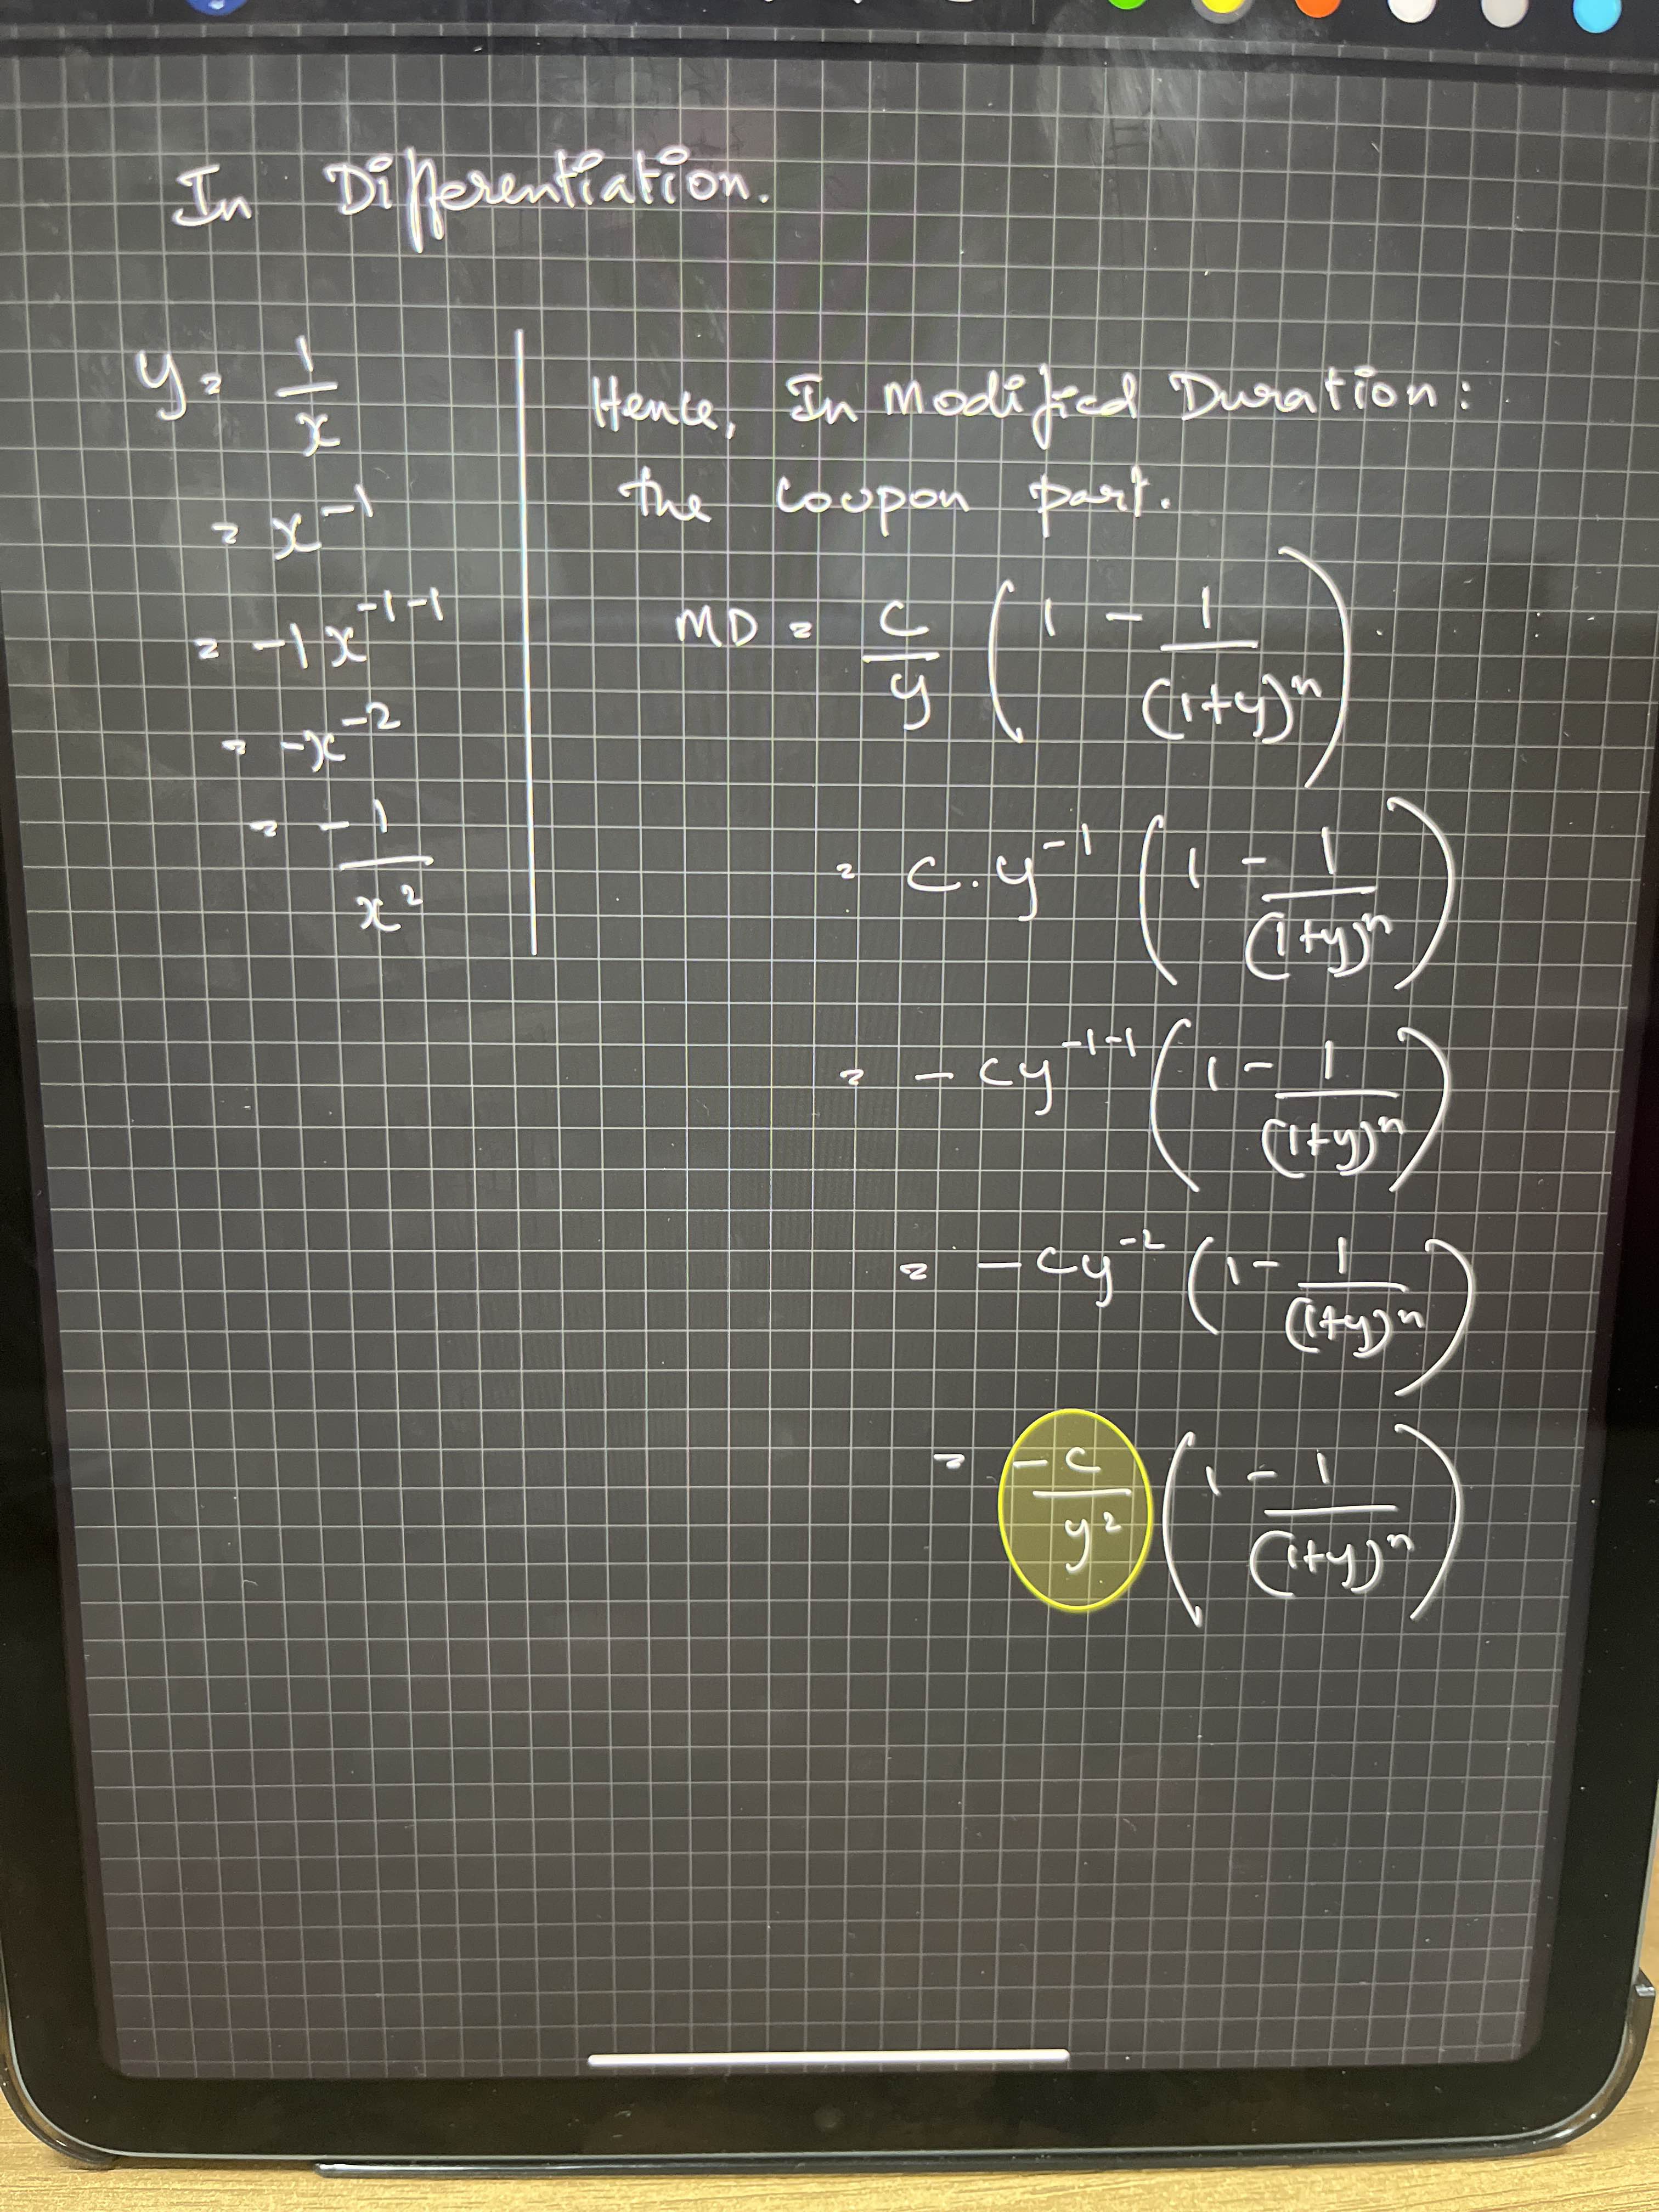 In Differentiation.
y = 1/x
= x^-1
= -1x^-1-1
= -x^-2
= -1/x^2
Hence, In Modified Duration:
the coupon part.
MD = C/y (1 - 1/(1+y)^n)
= C.y^-1 (1 - 1/(1+y)^n)
= -Cy^-1-1 (1 - 1/(1+y)^n)
= -Cy^-2 (1 - 1/(1+y)^n)
= -C/y^2 (1 - 1/(1+y)^n)